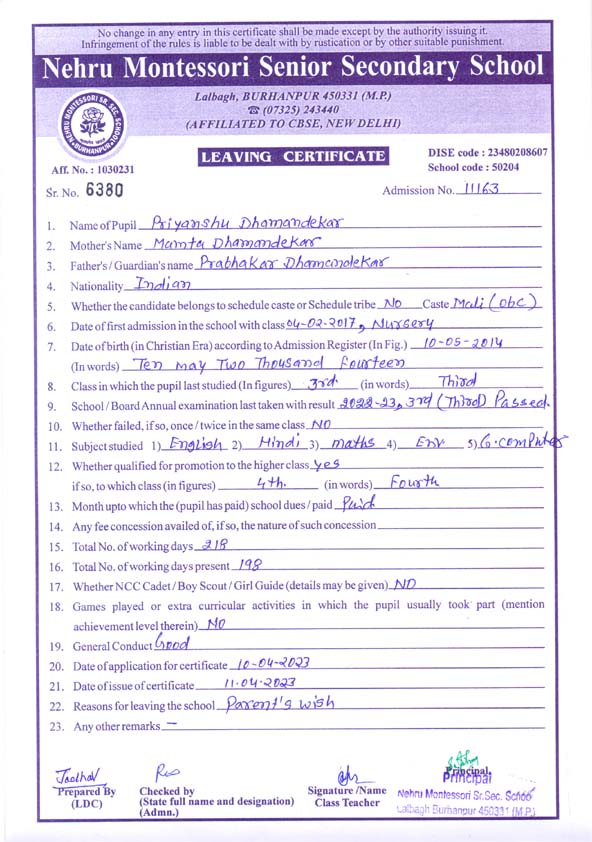 No change in any entry in this certificate shall be made except by the authority issuing it.
Infringement of the rules is liable to be dealt with by rustication or by other suitable punishment.
Nehru Montessori Senior Secondary School
Lalbagh, BURHANPUR 450331 (M.P.)
☎ (07325) 243440
(AFFILIATED TO CBSE, NEW DELHI)
NEHRU MONTESSORI SR. SEC. SCHOOL
BURHANPUR
LEAVING CERTIFICATE
DISE code : 23480208607
School code : 50204
Aff. No. : 1030231
Sr. No. 6380
Admission No. 11163
1. Name of Pupil Priyanshu Dhamandekar
2. Mother's Name Mamta Dhamandekar
3. Father's / Guardian's name Prabhakar Dhamandekar
4. Nationality Indian
5. Whether the candidate belongs to schedule caste or Schedule tribe NO Caste Mali (obc)
6. Date of first admission in the school with class 04-02-2017, Nursery
7. Date of birth (in Christian Era) according to Admission Register (In Fig.) 10-05-2014
(In words) Ten may Two Thousand Fourteen
8. Class in which the pupil last studied (In figures) 3rd. (in words) Third
9. School / Board Annual examination last taken with result 2022-23, 3rd (Third) Passed.
10. Whether failed, if so, once / twice in the same class NO
11. Subject studied 1) English 2) Hindi 3) maths 4) Env. 5) G.computer
12. Whether qualified for promotion to the higher class yes
if so, to which class (in figures) 4th. (in words) Fourth
13. Month upto which the (pupil has paid) school dues / paid Paid
14. Any fee concession availed of, if so, the nature of such concession
15. Total No. of working days 218
16. Total No. of working days present 198
17. Whether NCC Cadet / Boy Scout / Girl Guide (details may be given) NO
18. Games played or extra curricular activities in which the pupil usually took part (mention
achievement level therein) NO
19. General Conduct Good
20. Date of application for certificate 10-04-2023
21. Date of issue of certificate 11-04-2023
22. Reasons for leaving the school Parent's wish
23. Any other remarks —
Jadhav
Prepared By
(LDC)
Checked by
(State full name and designation)
(Admn.)
Signature /Name
Class Teacher
Principal,
Principal
Nehru Montessori Sr.Sec. School
Lalbagh Burhanpur 450331 (M.P.)